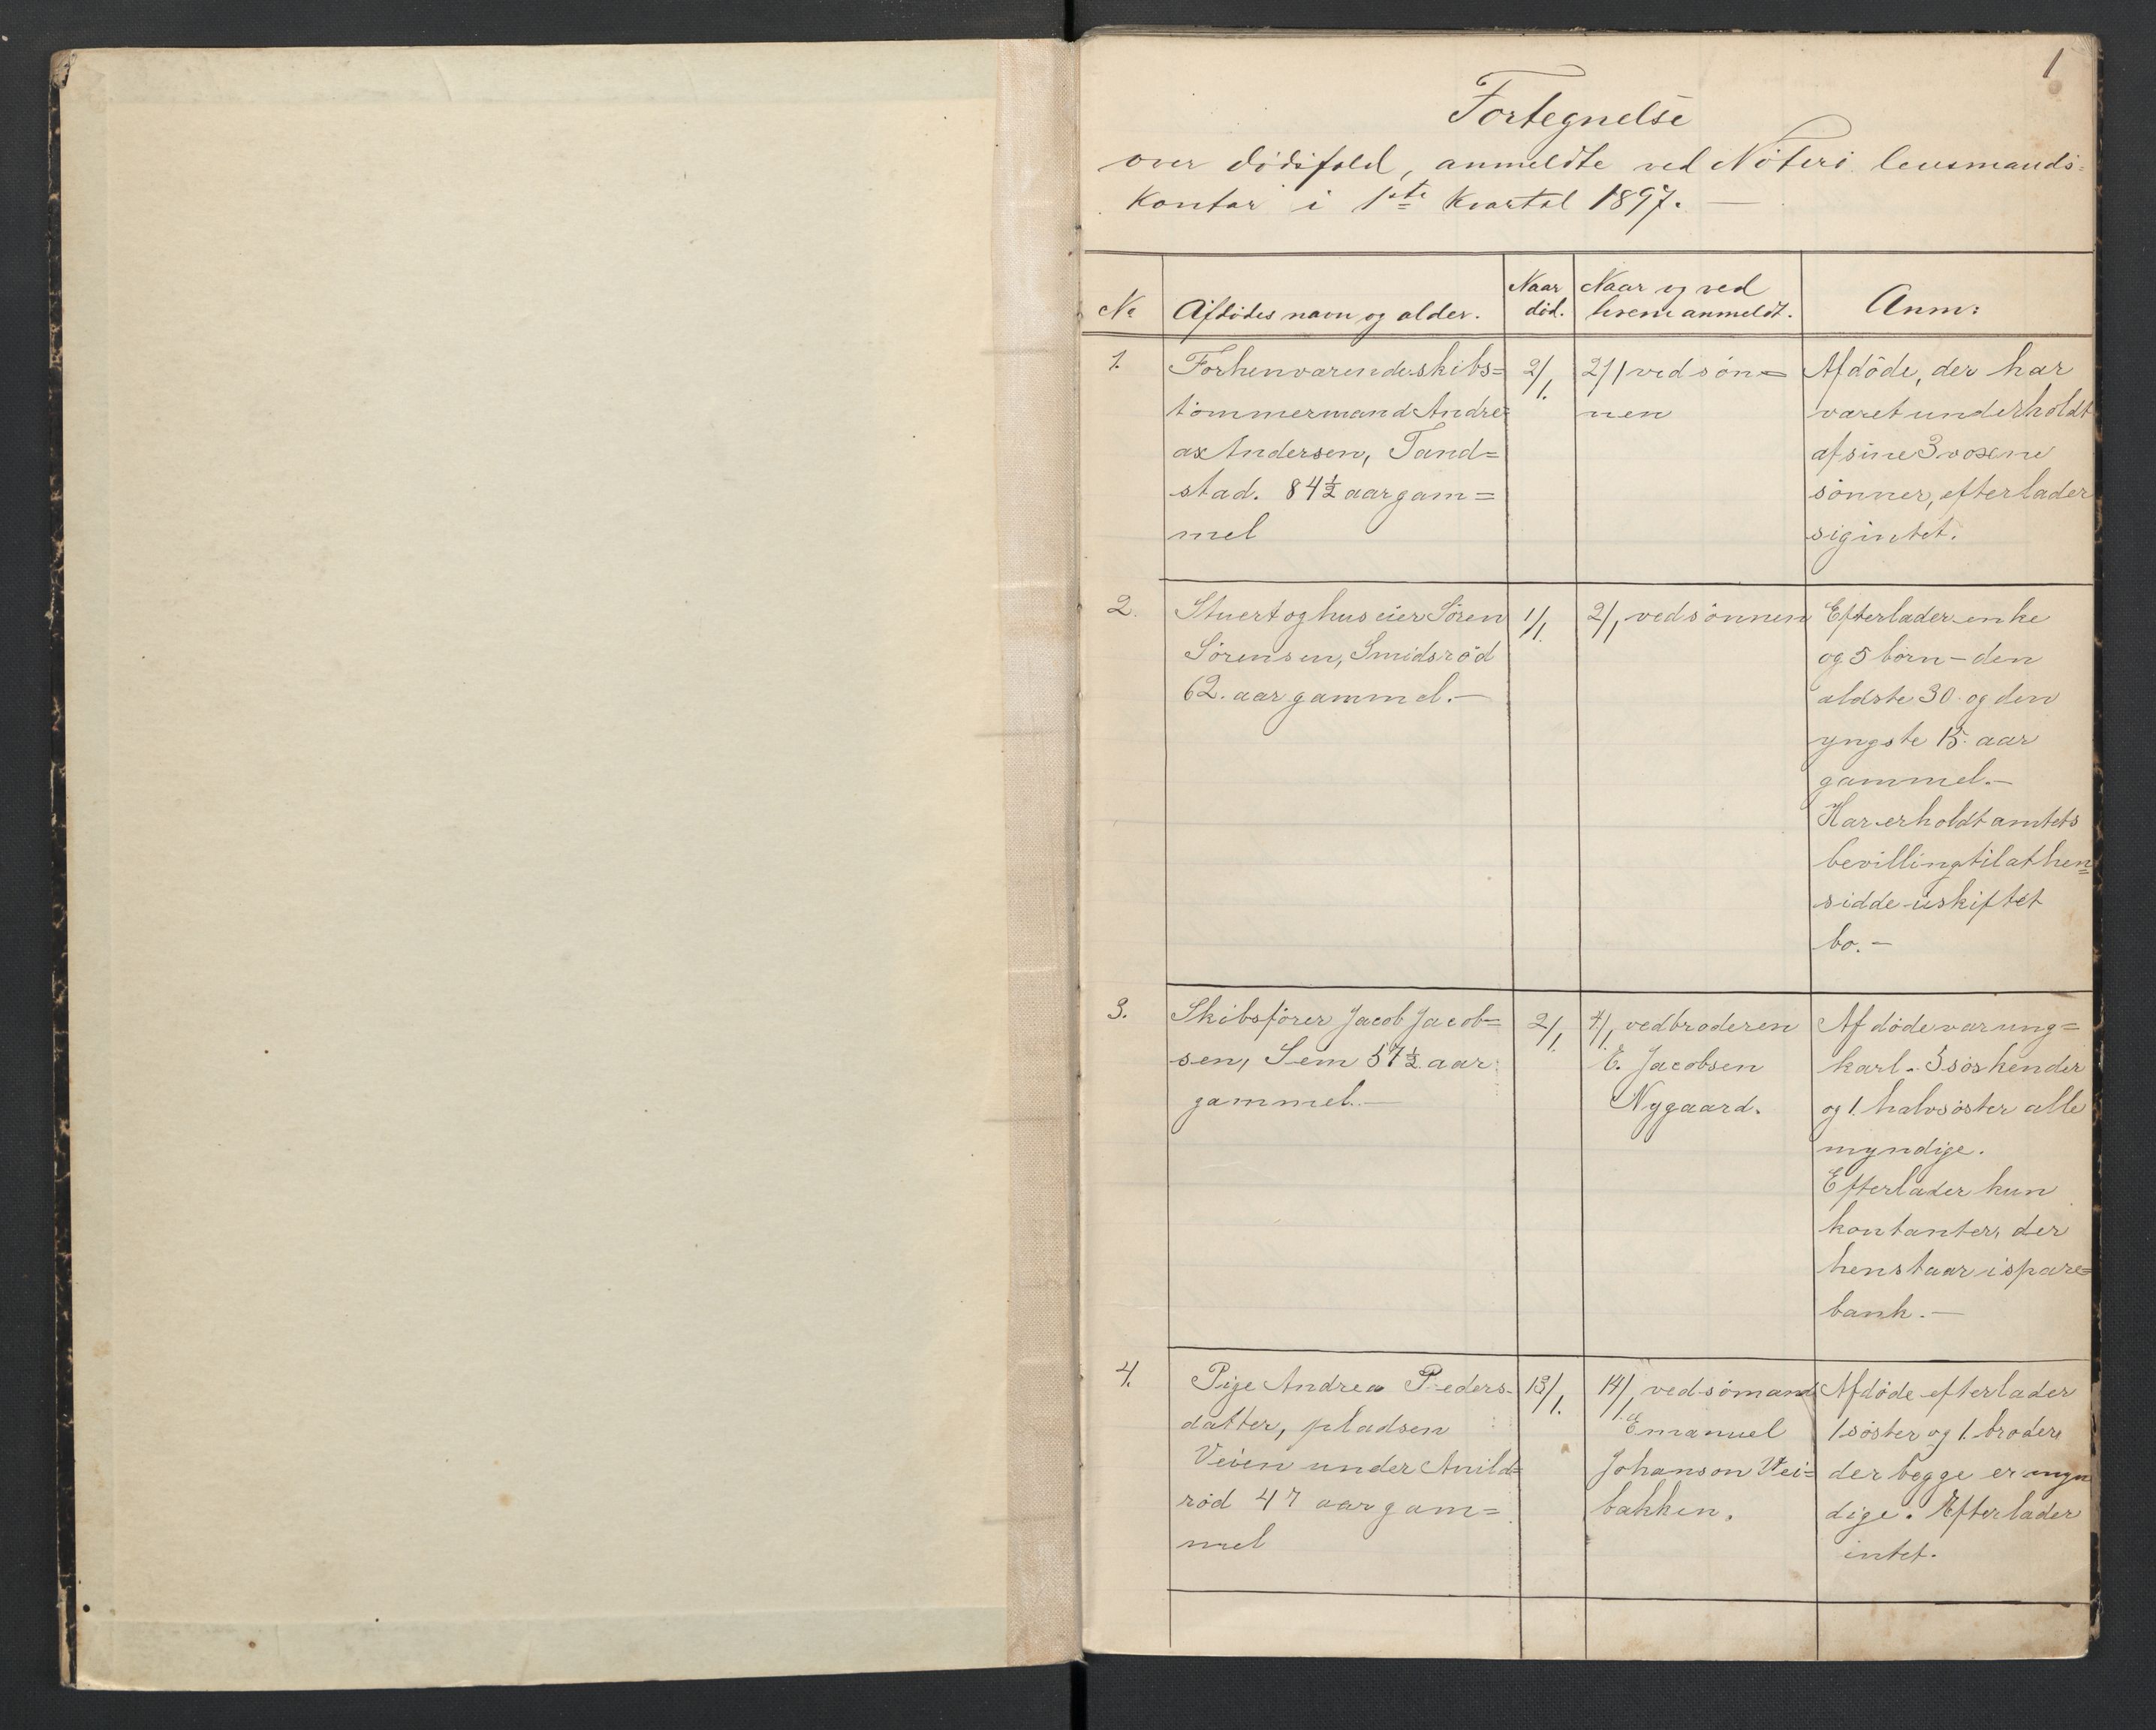 1
Fortegnelse
over dödsfald, anmeldte ved Nöterö lensmands=
kontor i 1ste kvartal 1897. —
No
Afdödes navn og alder.
Naar
död.
Naar og ved
hvem anmeldt.
Anm:
1.
Forhenværende skibs=
tömmermand Andre=
as Andersen, Tand=
stad. 84½ aar gam=
mel
2/1.
2/1 ved sön=
nen
Afdöde, der har
været underholdt
af sine 3 voxne
sönner, efterlader
sig intet.
2.
Stuert og huseier Sören
Sörensen, Smidsröd
62. aar gammel. —
1/1.
2/1 ved sönnen
Efterlader enke
og 5 börn – den
ældste 30 og den
yngste 15 aar
gammel. —
Har erholdt amtets
bevilling til at hen=
sidde i uskiftet
bo. —
3.
Skibsförer Jacob Jacob=
sen, Sem 57½ aar
gammel. —
2/1.
4/1. ved broderen
E. Jacobsen
Nygaard.
Afdöde var ung=
karl. 5 söskender
og 1 halvsöster alle
myndige.
Efterlader kun
kontanter, der
henstaar i spare=
bank. —
4.
Pige Andrea Peders-
datter, pladsen
Veien under
röd 47 aar gam=
mel
13/1.
14/1. ved sömand
Emanuel
Johanson Vei=
bakken.
Afdöde efterlader
1 söster og 1 broder
der begge er myn
dige. Efterlader
intet.